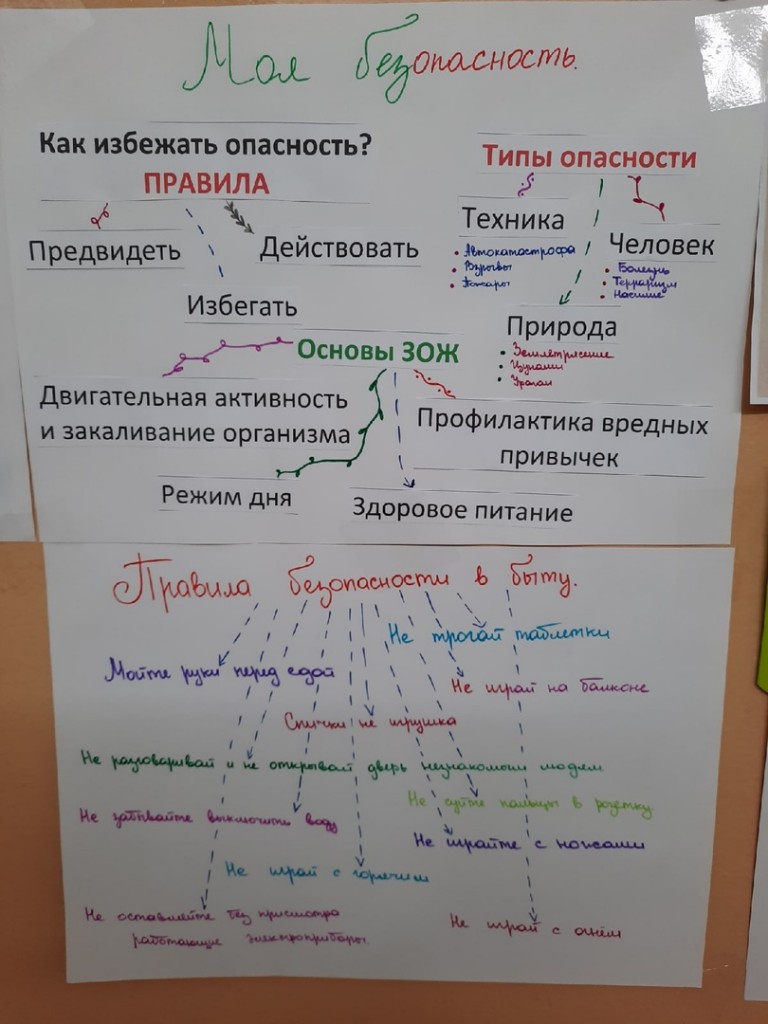 Моя безопасность.
Как избежать опасность?
ПРАВИЛА
Предвидеть
Действовать
Избегать
Типы опасности
Техника
• Автокатастрофа
• Взрывы
• Пожары
Человек
• Болезнь
• Терраризм
• Насилие
Природа
• Землетрясение
• Цунами
• Ураган
Основы ЗОЖ
Двигательная активность
и закаливание организма
Режим дня
Здоровое питание
Профилактика вредных
привычек
Правила безопасности в быту.
Не трогай таблетки
Мойте руки перед едой
Не играй на балконе
Спички не игрушка
Не разговаривай и не открывай дверь незнакомым людям
Не суйте пальцы в розетку
Не забывайте выключить воду
Не играйте с ножами
Не играй с горячим
Не оставляйте без присмотра
работающие электроприборы.
Не играй с огнём